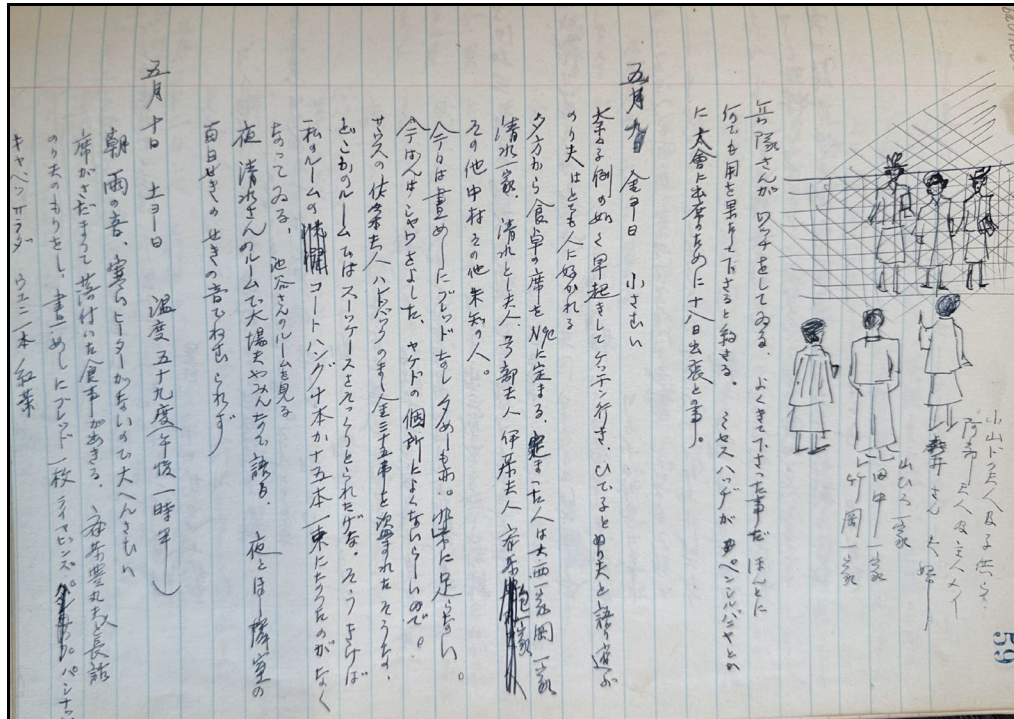 小山ドク夫人及子供二
阿部夫人及主人メイ
井さん夫婦
山ひろ一家
田中一家
竹岡一家
兵隊さんがワッチをしてゐる、よくきて下さった事だ ほんとに
何でも用を果たして下さると約する。ミセスハッヂがペンシルバニヤとか
に大會に出席のために十八日出裘との事。
五月九日 金ヨー日 小さむい
例の如く早起きしてケッチン行き、ひで子とのり夫と語り遊ぶ
のり夫はとても人に好かれる
夕方から食卓の席を No.に定まる、定まった人は大西一家 岡一家
清水一家、清水と一夫人、夫人 伊藤夫人 安井一家
その他中村その他未知の人。
今日は晝めしにブレッドなし 夕めしも亦。非常に足らない。
今ばんはシャワをよした、ヤケドの個所よくないらしいので。
サウスの佐藤夫人ハンドバックのまゝ金三十五弗を盗まれたそうな、
どこかのルームではスーツケースさえごっそりとられたげな。そう云えば
私のルームの コートハング十本か十五本一束にたのがなく
なってゐる、 池谷さんのルームを見る
夜 清水さんのルームで大場夫やみんなで語る 夜とほし隣室の
百日せきのせきの音でねむられず
五月十日 土ヨー日 温度五十九度(午後一時半)
朝 雨の音、寒い ヒーターがないので大へんさむい
席がさだまって落付いた食事ができる、豊丸たちと長話
のり夫のもりをし、晝めしにブレッド一枚 ライ ビンズ
キャベツサラダ ウエニ一本 紅茶
59